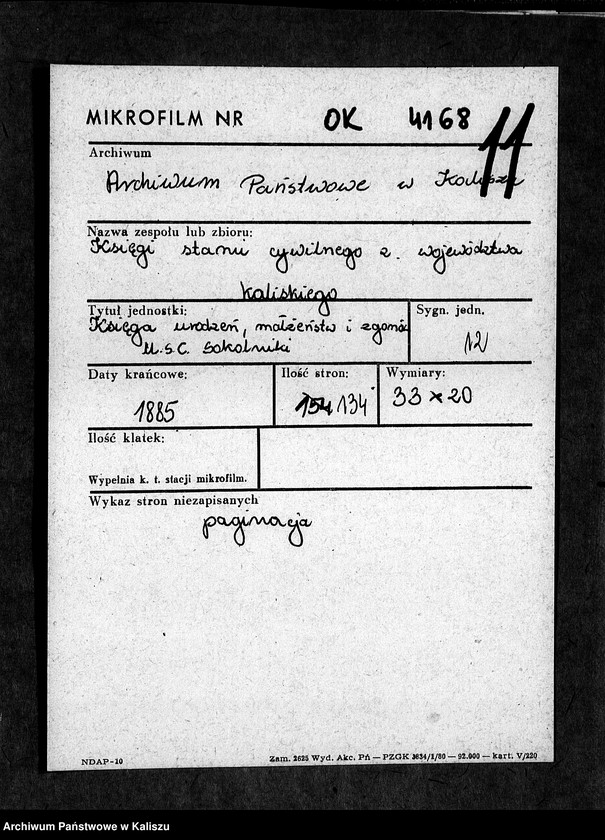 MIKROFILM NR OK 4168 11
Archiwum
Archiwum Państwowe w Kaliszu
Nazwa zespołu lub zbioru:
Księgi stanu cywilnego z województwa
kaliskiego
Tytuł jednostki:
Księga urodzeń, małżeństw i zgonów
U.S.C. Sokolniki
Sygn. jedn.
12
Daty krańcowe:
1885
Ilość stron:
154 134
Wymiary:
33 x 20
Ilość klatek:
Wypełnia k. t. stacji mikrofilm.
Wykaz stron niezapisanych
paginacja
NDAP-10
Zam. 2625 Wyd. Akc. Pń — PZGK 3634/1/80 — 92.000 — kart. V/220
Archiwum Państwowe w Kaliszu